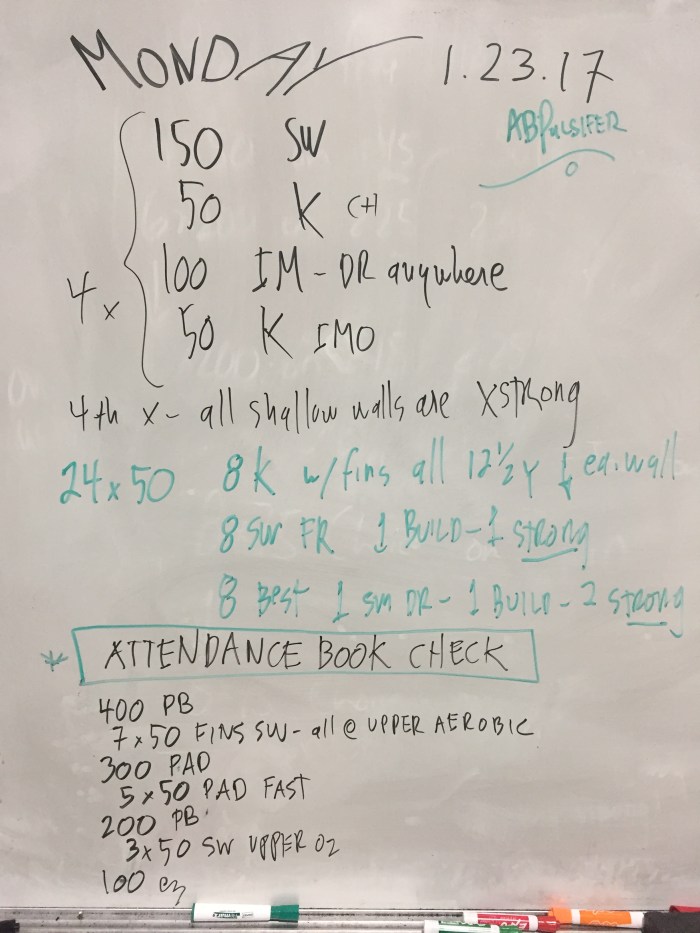 MONDAY 1.23.17
ABPulsifer
150 SW
50 K CH
4x
100 IM - DR anywhere
50 K IMO
4th x - all shallow walls are Xstrong
24x50 8K w/fins all 12½Y ↓ ea. wall
8 SW FR 1 BUILD - 1 strong
8 BEST 1 sm DR - 1 BUILD - 2 strong
* ATTENDANCE BOOK CHECK
400 PB
7x50 FINS SW - all @ UPPER AEROBIC
300 PAD
5x50 PAD FAST
200 PB
3x50 SW UPPER O2
100 ez
EXPO